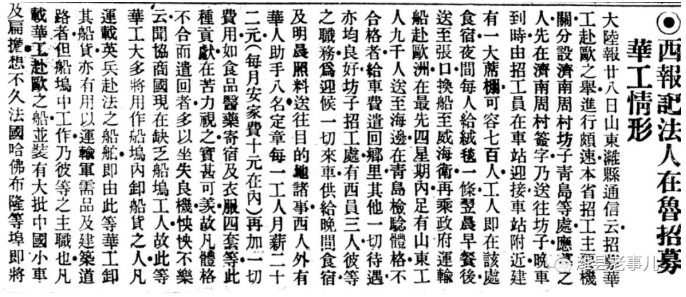 ◉西報記法人在魯招募
華工情形
大陸報廿八日山東濰縣通信云招募華
工赴歐之舉進行頗速本省招工主要機
關分設濟南周村坊子青島等處應募之
人先在濟南周村簽字乃送往坊子晚車
到時由招工員在車站迎接車站附近建
有一大蓆棚可容七百人工人即在該處
食宿夜間每人給絨毯一條翌晨早餐後
送至張口換船至威海衛再乘政府運輸
船赴歐洲在最先四星期內足有山東工
人九千人送至海邊在青島檢驗體格不
合格者給車費遣回鄉里其他一切待遇
亦均良好坊子招工處有西員三人彼等
之職務為迎候一切來車供給晚間食宿
及明晨照料送往目的地諸事西人外有
華人助手八名定章每一工人月薪二十
二元(每月安家費十元在內)再加一切
費用如食品醫藥寄宿及衣服四套等此
種貢獻在苦力視之實甚可羨故凡體格
不合而遣回者多以坐失良機怏怏不樂
云聞協商國現在缺乏船塢工人故此等
華工大多將用作船塢內卸船貨之人凡
運載英兵赴法之船舶即由此等華工卸
其船貨亦有用以運輸軍需品及建築道
路者但船塢中工作乃彼等之主職也凡
載華工赴歐之船並裝有大批中國小車
及扁擔想不久法國哈佛布隆等埠即將
濰縣老事儿